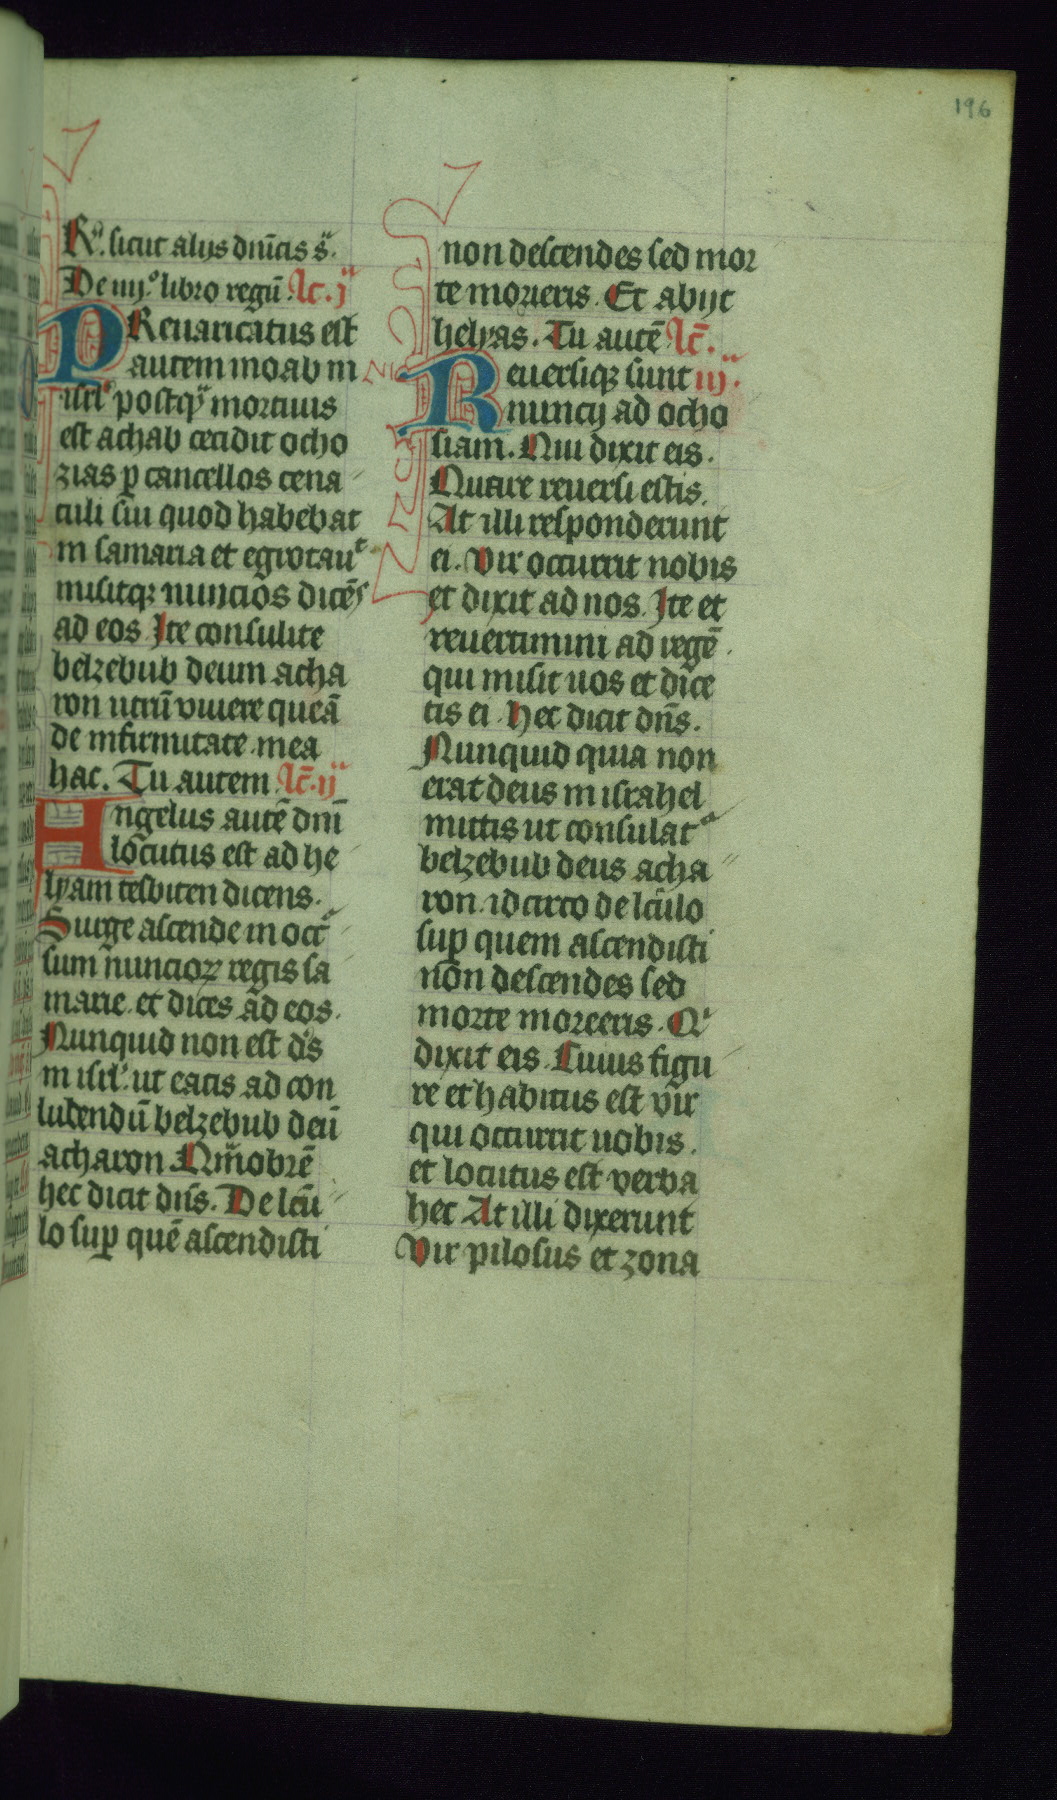 196
Rᵃ. sicut alijs dn̄icis sᵃ.
De iiijº. libro regū. lc̄. jᵃ
PReuaricatus est
autem moab in
isrl' postqᵃ mortuus
est achab cecidit ocho
zias ꝑ cancellos cena
culi sui quod habebat
in samaria et egrotauᵗ
misitqꝫ nuncios dicēs
ad eos Ite consulite
belzebub deum acha
ron utrū viuere queā
de infirmitate mea
hac. Tu autem lc̄. ijᵃ
Angelus autē dn̄i
locutus est ad he
lyam tesbiten dicens.
Surge ascende in occᵘʳ
sum nuncioꝝ regis sa
marie et dices ad eos.
Nunquid non est ds̄
in isrl' ut eatis ad con
sulendū belzebub deū
acharon Qm̄obrē
hec dicit dn̄s. De lc̄u
lo suꝑ quē ascendisti
non descendes sed mor
te morieris. Et abijt
helyas. Tu autē lc̄.
Reuersiqꝫ sunt iijᵃ.
nuncij ad ocho
siam. Qui dixit eis.
Quare reuersi estis.
At illi responderunt
ei. Vir occurrit nobis
et dixit ad nos. Ite et
reuertimini ad regē.
qui misit uos et dice
tis ei. Hec dicit dn̄s.
Nunquid quia non
erat deus in israhel
mittis ut consulatʳ
belzebub deus acha
ron. idcirco de lc̄ulo
suꝑ quem ascendisti
non descendes sed
morte morieris. Qⁱ
dixit eis. Cuius figu
re et habitus est vir
qui occurrit uobis.
et locutus est verba
hec At illi dixerunt
Vir pilosus et zona